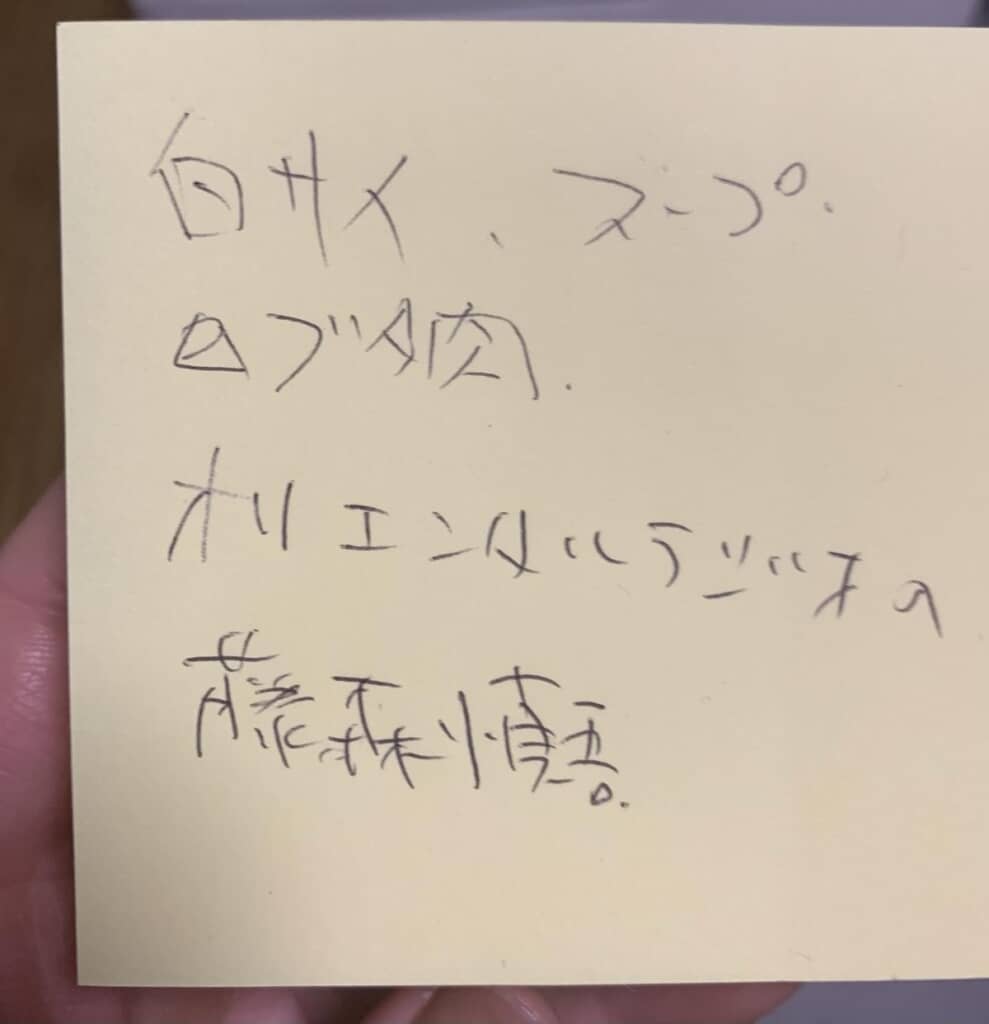 白サイ、スープ.
ロブ肉.
オリエンタルラジオの
藤森慎吾.